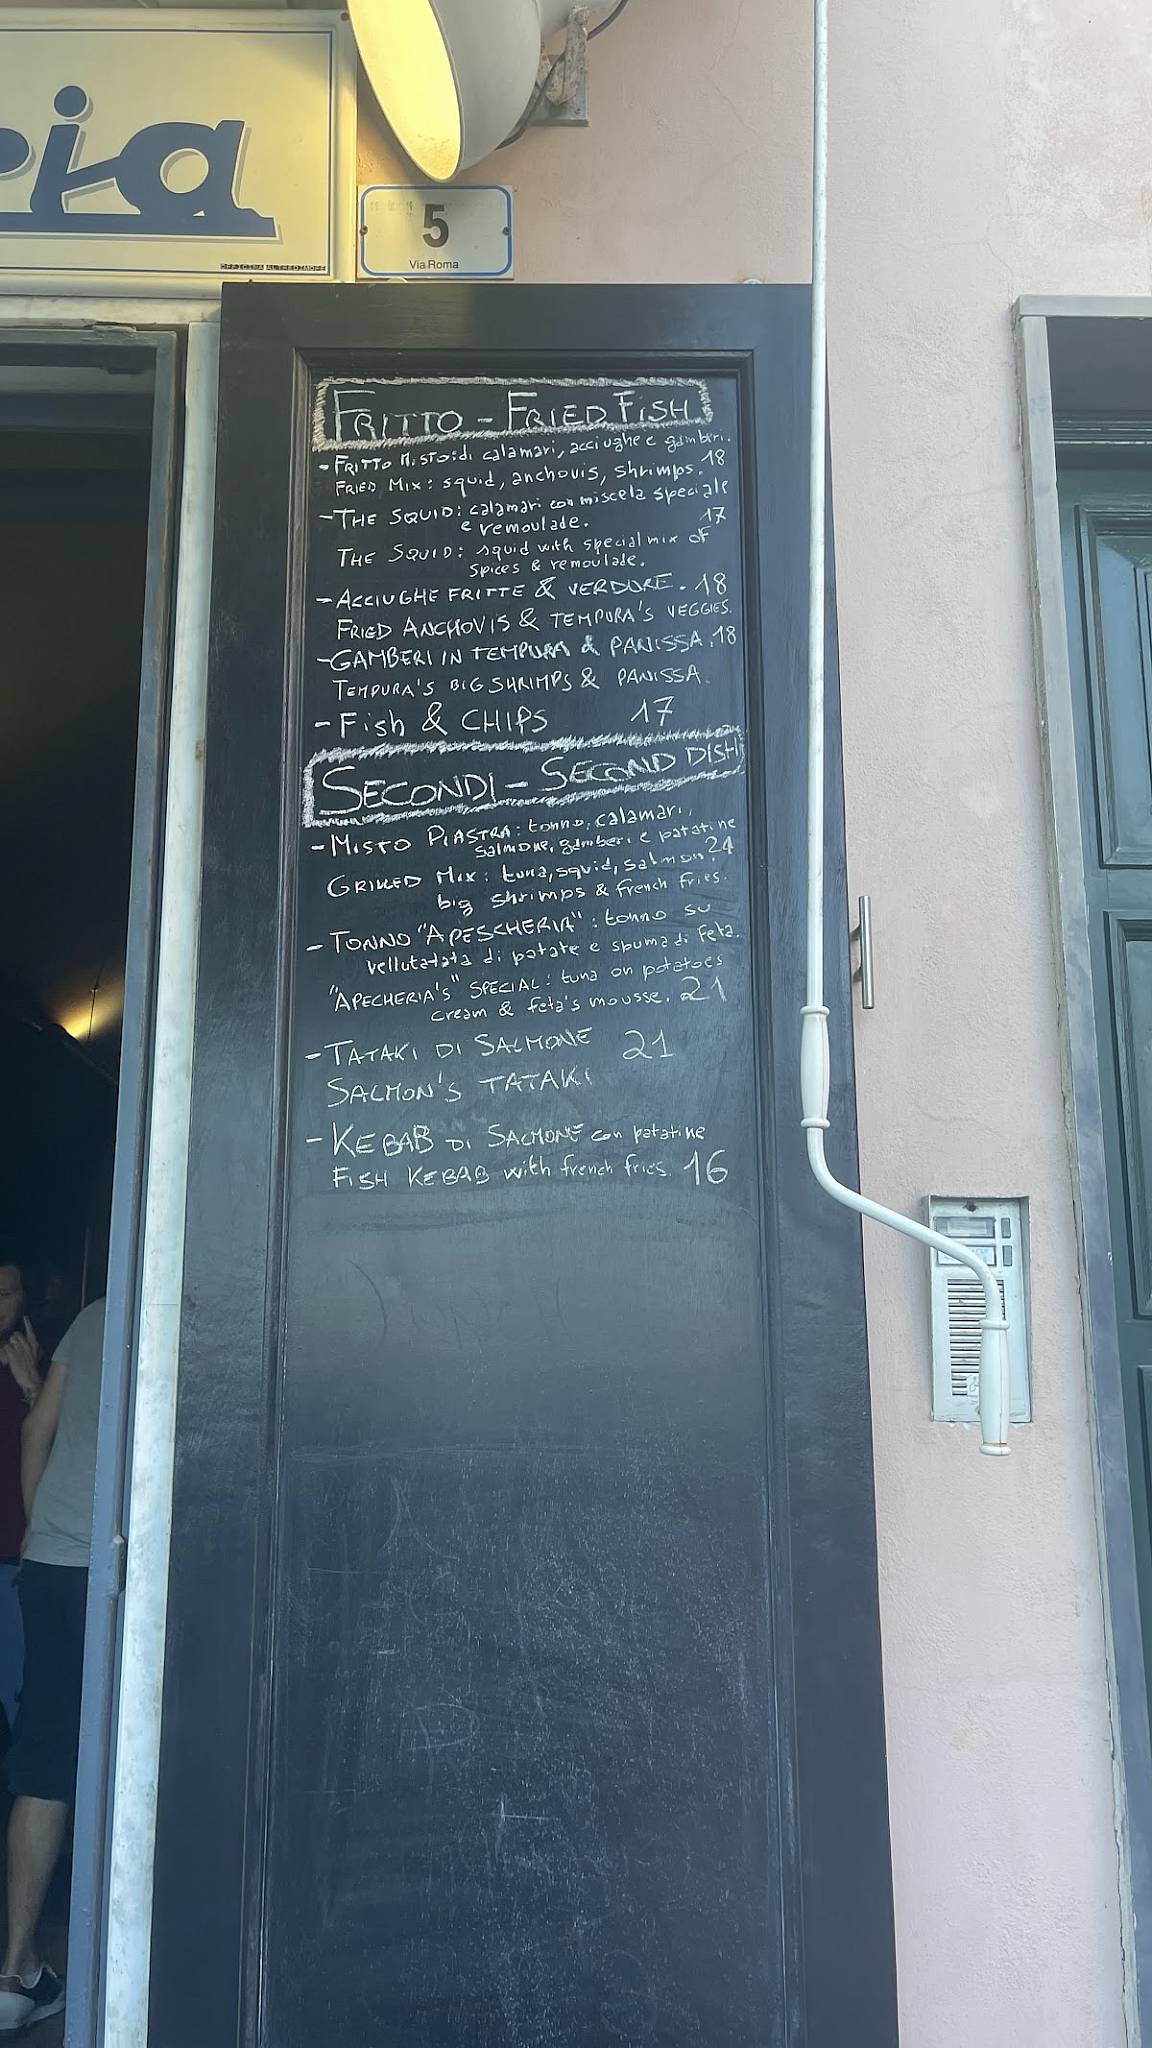 ria
OFFICINA ALFREDIMOFF
5
Via Roma
FRITTO - FRIED FISH
- FRITTO MISTO: di calamari, acciughe e gamberi.
FRIED MIX: squid, anchovis, shrimps. 18
- THE SQUID: calamari con miscela speciale
e remoulade. 17
THE SQUID: squid with special mix of
spices & remoulade.
- ACCIUGHE FRITTE & VERDURE. 18
FRIED ANCHOVIS & TEMPURA'S VEGGIES.
- GAMBERI IN TEMPURA & PANISSA. 18
TEMPURA'S BIG SHRIMPS & PANISSA.
- Fish & CHIPS 17
SECONDI - SECOND DISH
- MISTO PIASTRA: tonno, calamari,
salmone, gamberi e patatine
GRILLED MIX: tuna, squid, salmon, 24
big shrimps & french fries.
- TONNO "APESCHERIA": tonno su
vellutatata di patate e spuma di feta.
"APECHERIA'S" SPECIAL: tuna on potatoes
cream & feta's mousse. 21
- TATAKI DI SALMONE 21
SALMON'S TATAKI
- KEBAB DI SALMONE con patatine
FISH KEBAB with french fries. 16